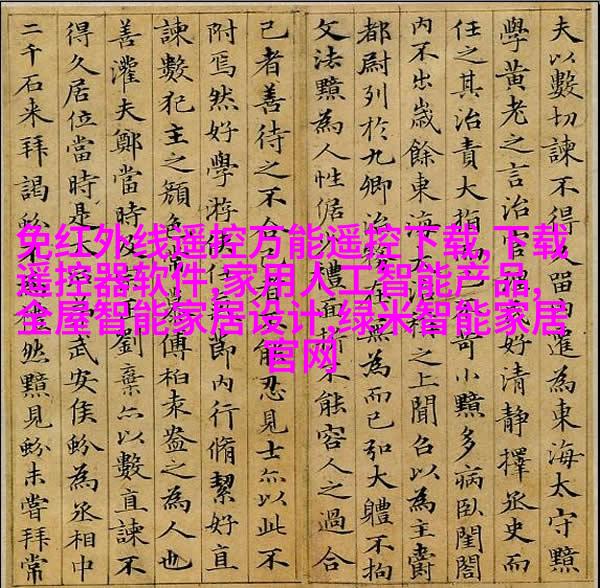 免红外线遥控万能遥控下载,下载
遥控器软件,家用人工智能产品,
全屋智能家居设计,绿米智能家居
官网
夫以數切諫不得留内遷為東海太守黯
學黄老之言治官好清静擇丞史而
任之其治責大指苛小黯多病臥閨閤
内不出歲餘東海大治之上聞召以為主爵
都尉列於九卿治務在無為而已弘大體不拘
文法黯為人性倨禮面能容人之過合
己者善待之不合己者能忍見士亦以此不
附焉然好學游俠節内行脩絜好直
諫數犯主之顔色常傅柏袁盎之為人也
善灌夫鄭當時及正劉棄亦以數直諫不
得久居位當時是太弟武安侯蚡為丞相中
二千石来拜謁蚡不禮然黯見蚡未嘗拜常